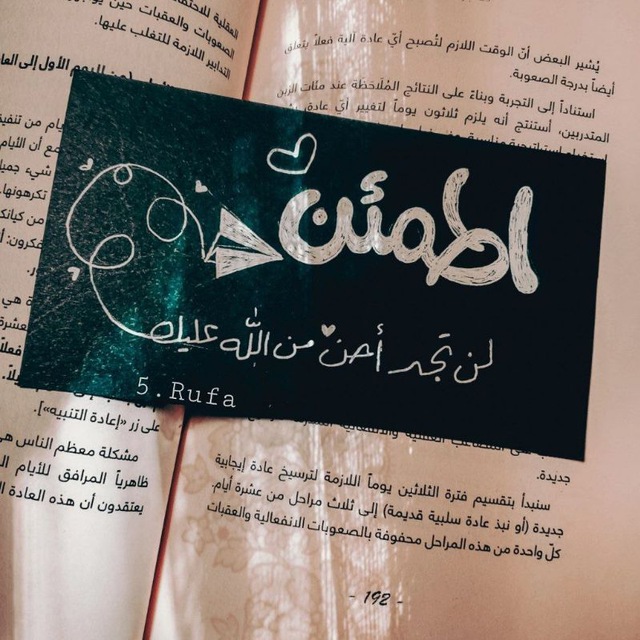 للعقلية للاحتفا
الصعوبات والعقبات حين يو
التدابير اللازمة للتغلب عليها.
اليوم الأول إلى العا
يام من تنفيذ
مع أن الأيام
شيء جميل
تكرهونها.
من كيانك
فكرون: أ
ور.
ة هي
لعشرة
فعلاً
لاً.
على زر «إعادة التنبيه»].
مشكلة معظم الناس هي
ظاهرياً المرافق للأيام ال
يعتقدون أن هذه العادة ال
يُشير البعض أنّ الوقت اللازم لتُصبح أيّ عادة آلية فعلاً يتعلق
أيضاً بدرجة الصعوبة.
استناداً إلى التجربة وبناءً على النتائج المُلاحَظة عند مئات الزبن
المتدربين، أستنتج أنه يلزم ثلاثون يوماً لتغيير أيّ عادة
اطمئن
لن تجد أحن من الله عليك
5.Rufa
جديدة.
سنبدأ بتقسيم فترة الثلاثين يوماً اللازمة لترسيخ عادة إيجابية
جديدة (أو نبذ عادة سلبية قديمة) إلى ثلاث مراحل من عشرة أيام.
كلّ واحدة من هذه المراحل محفوفة بالصعوبات الانفعالية والعقبات
- 192 -